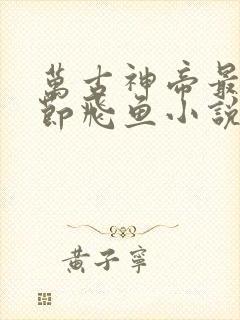 萬古神帝最
節飛魚小說
黃子寧